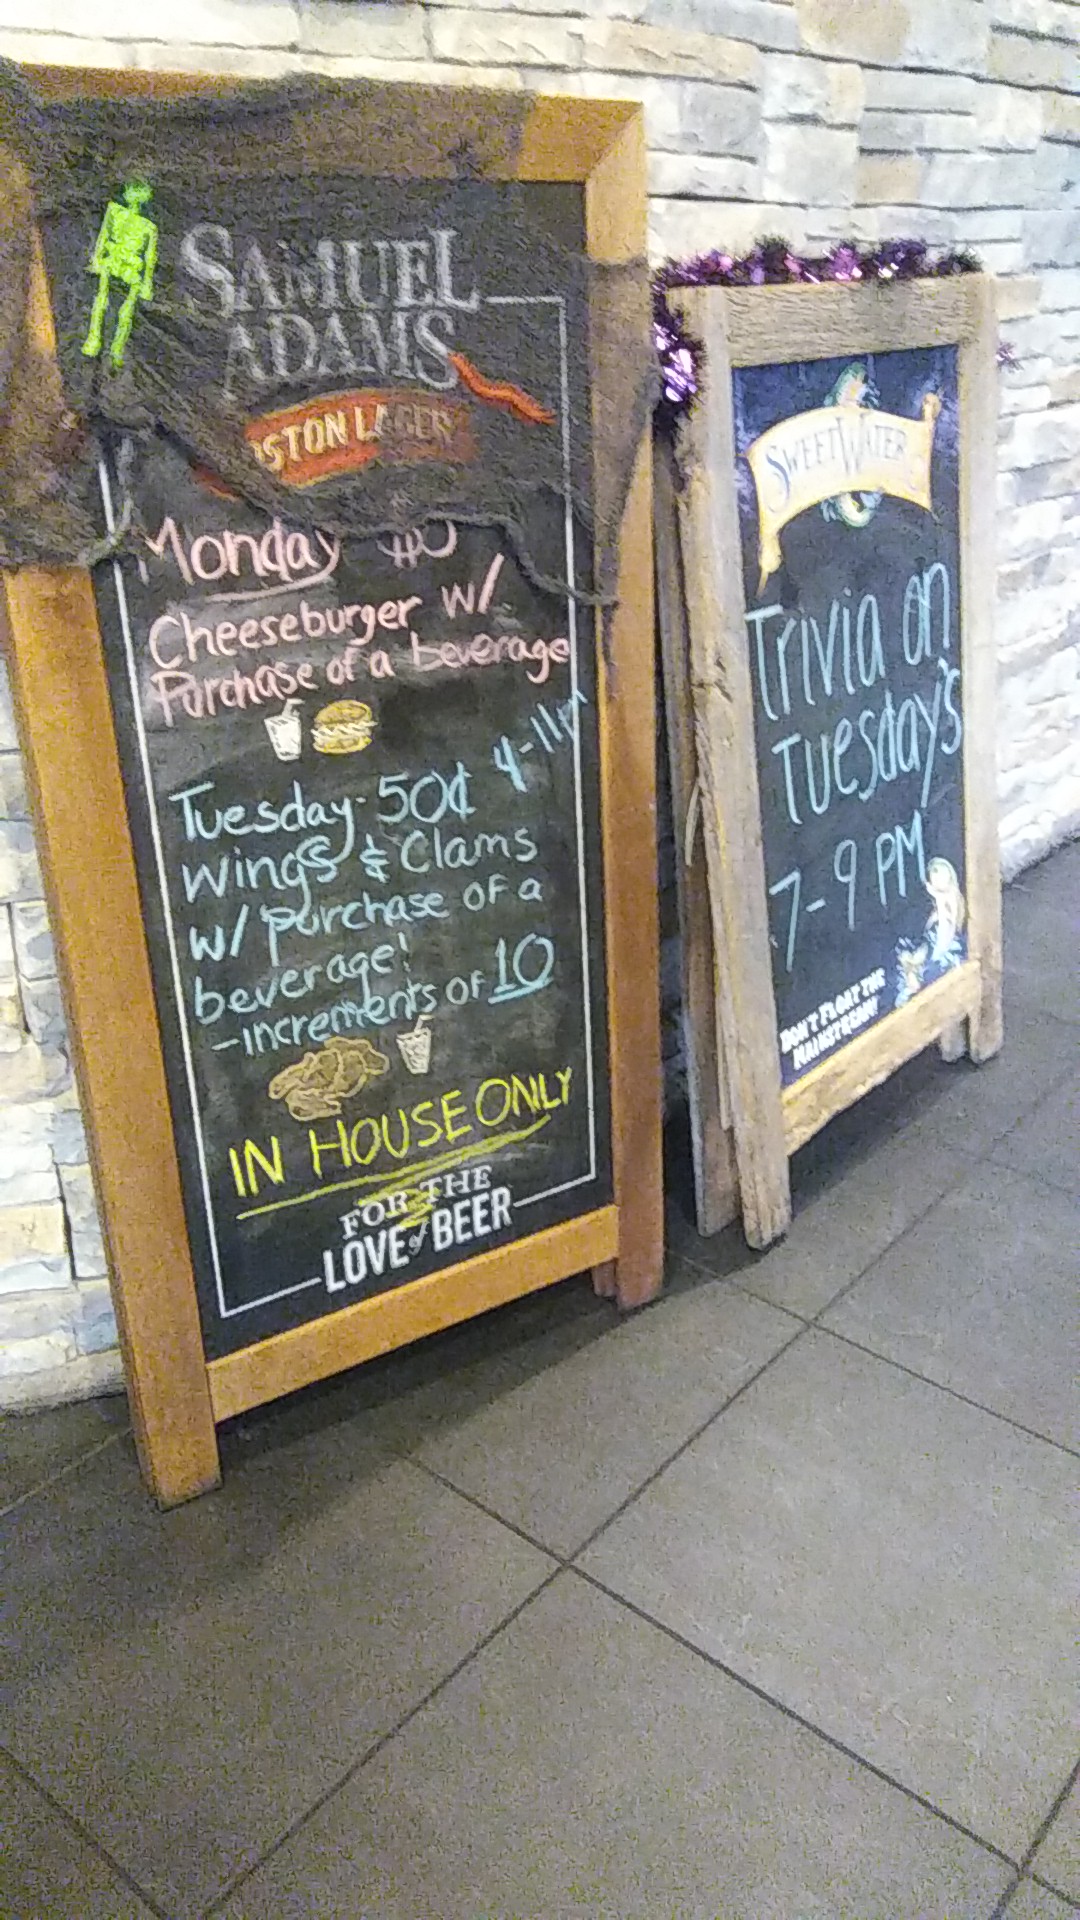 SAMUEL
ADAMS
STON LAGER
Monday
Cheeseburger w/
Purchase of a beverage
4-11p
Tuesday- 50¢
Wings & Clams
w/ purchase of a
beverage!
-increments of 10
IN HOUSE ONLY
FOR THE
LOVE of BEER
SWEETWATER
Trivia on
Tuesday's
7-9 PM
DON'T FLOAT THE
MAINSTREAM!